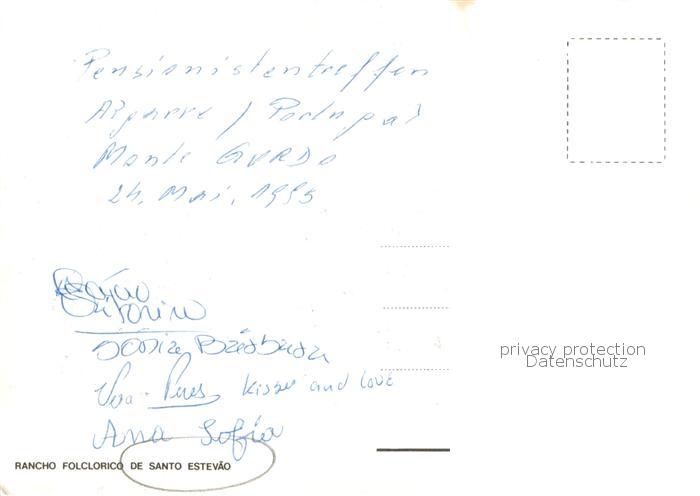 Pensionistentreffen
Algarve / Portugal
Monte GORDO
24. Mai. 1995
Vitorino
Sonia Bárbara
Vera Pires kisses and love
Ana Sofia
privacy protection
Datenschutz
RANCHO FOLCLORICO DE SANTO ESTEVÃO